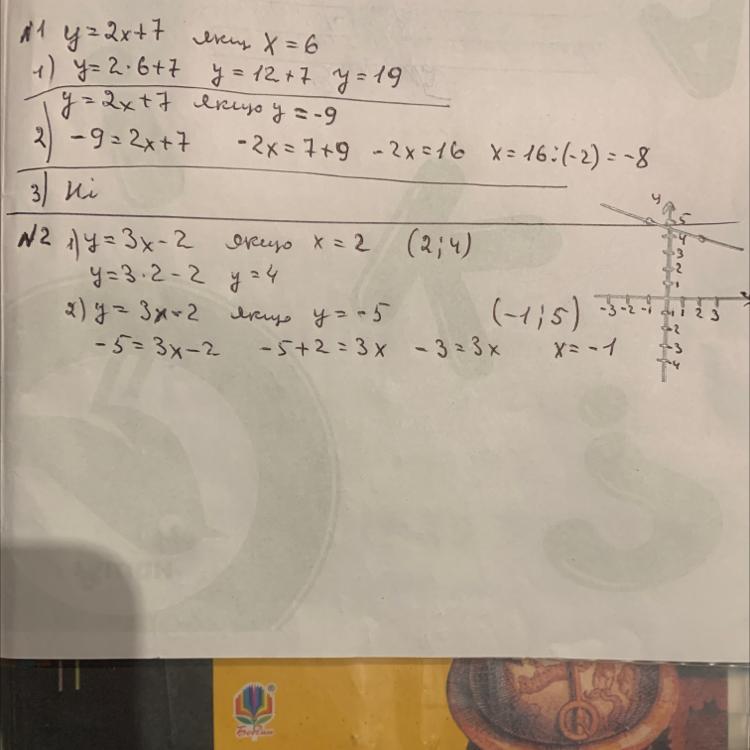 №1 y=2x+7 якщо x=6
1) y=2·6+7 y=12+7 y=19
y=2x+7 якщо y=-9
2) -9=2x+7 -2x=7+9 -2x=16 x=16:(-2)=-8
3) Ні
№2 1) y=3x-2 якщо x=2 (2;4)
y=3·2-2 y=4
2) y=3x-2 якщо y=-5 (-1;5)
-5=3x-2 -5+2=3x -3=3x x=-1
y
5
4
3
2
1
-3 -2 -1 1 2 3
1
2
3
4